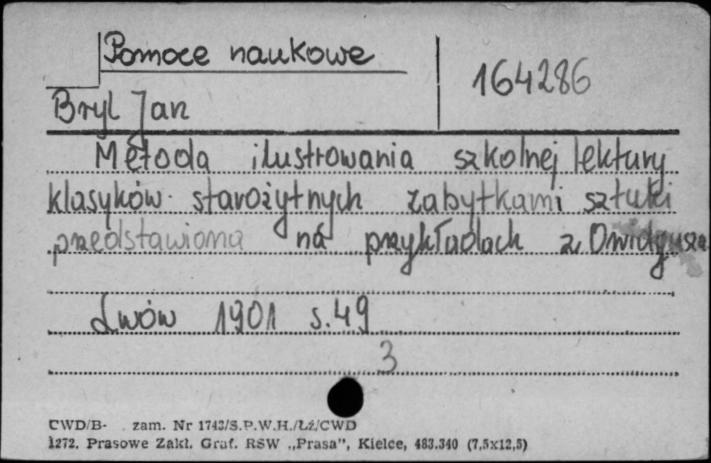 Pomoce naukowe
164286
Bryl Jan
Metoda ilustrowania szkolnej lektury
klasyków starożytnych zabytkami sztuki
przedstawiona na przykładach z Owidyusza
Lwów 1901 s. 49
3
CWD/B- zam. Nr 1743/S.P.W.H./Łź/CWD
1272. Prasowe Zakł. Graf. RSW „Prasa”, Kielce, 483.340 (7,5x12,5)